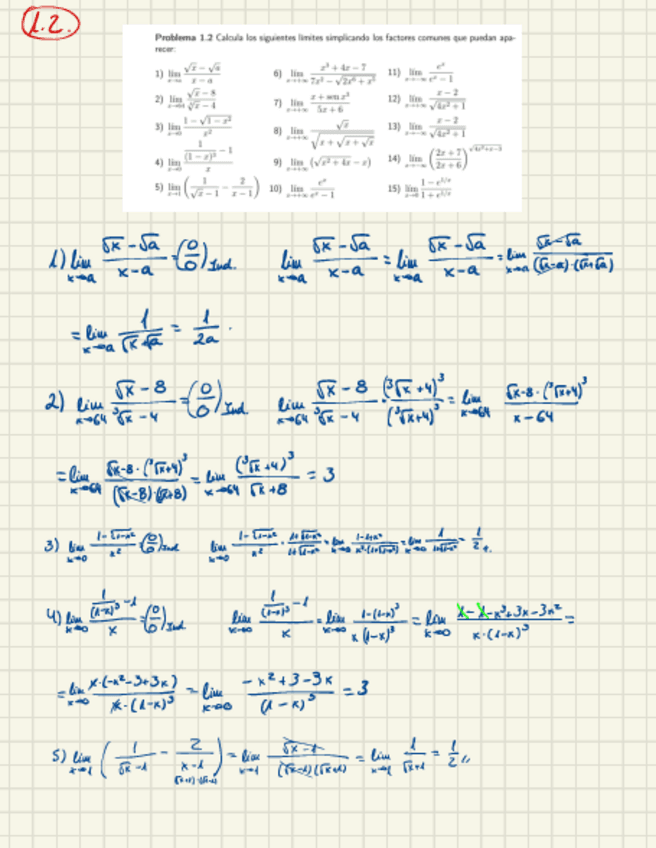 1.2.
Problema 1.2 Calcula los siguientes límites simplicando los factores comunes que puedan apa-
recer:
1) lím x→a (√x − √a)/(x − a)
2) lím x→64 (√x − 8)/(∛x − 4)
3) lím x→0 (1 − √(1 − x²))/x²
4) lím x→0 (1/(1 − x)³ − 1)/x
5) lím x→1 (1/(√x − 1) − 2/(x − 1))
6) lím (x³ + 4x − 7)/(7x² − √(2x⁶ + x⁵))
7) lím (x + sen x³)/(5x + 6)
8) lím √x/√(x + √(x + √x))
9) lím (√(x² + 4x) − x)
10) lím eˣ/(eˣ − 1)
11) lím eˣ/(eˣ − 1)
12) lím (x − 2)/√(4x² + 1)
13) lím (x − 2)/√(4x² + 1)
14) lím ((2x + 7)/(2x + 6))
15) lím (1 − e^(1/x))/(1 + e^(1/x))
1) lim x→a (√x − √a)/(x − a) = (0/0) Ind. lim x→a (√x − √a)/(x − a) = lim x→a (√x − √a)/(x − a) = lim x→a (√x − √a)/((√x − √a)·(√x + √a))
= lim x→a 1/(√x + √a) = 1/2a.
2) lim x→64 (√x − 8)/(³√x − 4) = (0/0) Ind. lim x→64 (√x − 8)/(³√x − 4) · (³√x + 4)³/(³√x + 4)³ = lim x→64 (√x − 8 · (³√x + 4)³)/(x − 64)
= lim x→64 (√x − 8 · (³√x + 4)³)/((√x − 8)·(√x + 8)) = lim x→64 (³√x + 4)³/(√x + 8) = 3
3) lim x→0 (1 − √(1 − x²))/x² = (0/0) Ind lim x→0 (1 − √(1 − x²))/x² · (1 + √(1 − x²))/(1 + √(1 − x²)) = lim x→0 (1 − 1 + x²)/(x²·(1 + √(1 − x²))) = lim x→0 1/(1 + √(1 − x²)) = 1/2 //.
4) lim x→0 (1/(1 − x)³ − 1)/x = (0/0) Ind lim x→0 (1/(1 − x)³ − 1)/x = lim x→0 (1 − (1 − x)³)/(x (1 − x)³) = lim x→0 (1 − 1 − x³ + 3x − 3x²)/(x·(1 − x)³) =
= lim x→0 (x·(−x² − 3 + 3x))/(x·(1 − x)³) = lim x→0 (−x² + 3 − 3x)/(1 − x)³ = 3
5) lim x→1 (1/(√x − 1) − 2/(x − 1)) = lim x→1 (√x − 1)/((√x − 1)(√x + 1)) = lim x→1 1/(√x + 1) = 1/2 //
(√x + 1)·(√x − 1)